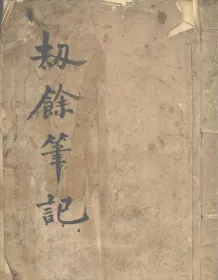 刼餘筆記